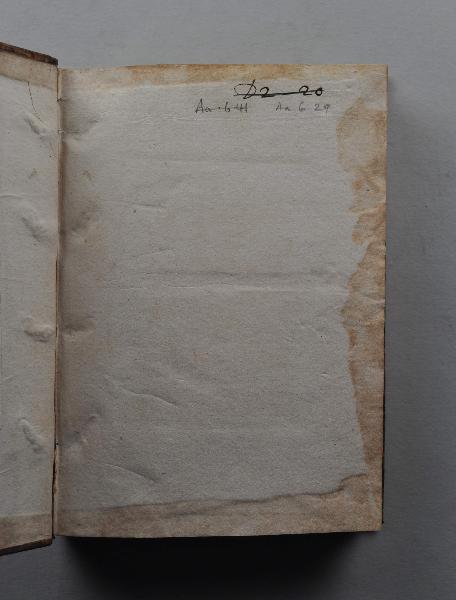 D2 20
Aa·6·41 Aa 6 29